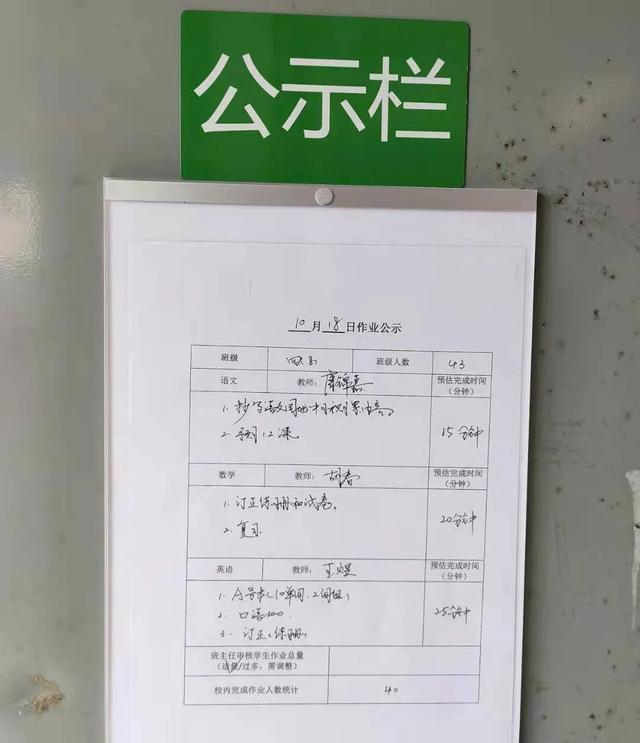 公示栏
10月18日作业公示
班级 班级人数 43
语文 教师: 预估完成时间(分钟)
1. 抄写语文园地
2. 预习12课
15分钟
数学 教师: 胡春 预估完成时间(分钟)
1. 订正练习册和试卷。
2. 复习
20分钟
英语 教师: 王煜 预估完成时间(分钟)
1. 本(10单词、2词组)
2. 口语100
3. 订正(练册)
25分钟
班主任审核学生作业总量
(适量/过多,需调整)
校内完成作业人数统计 40